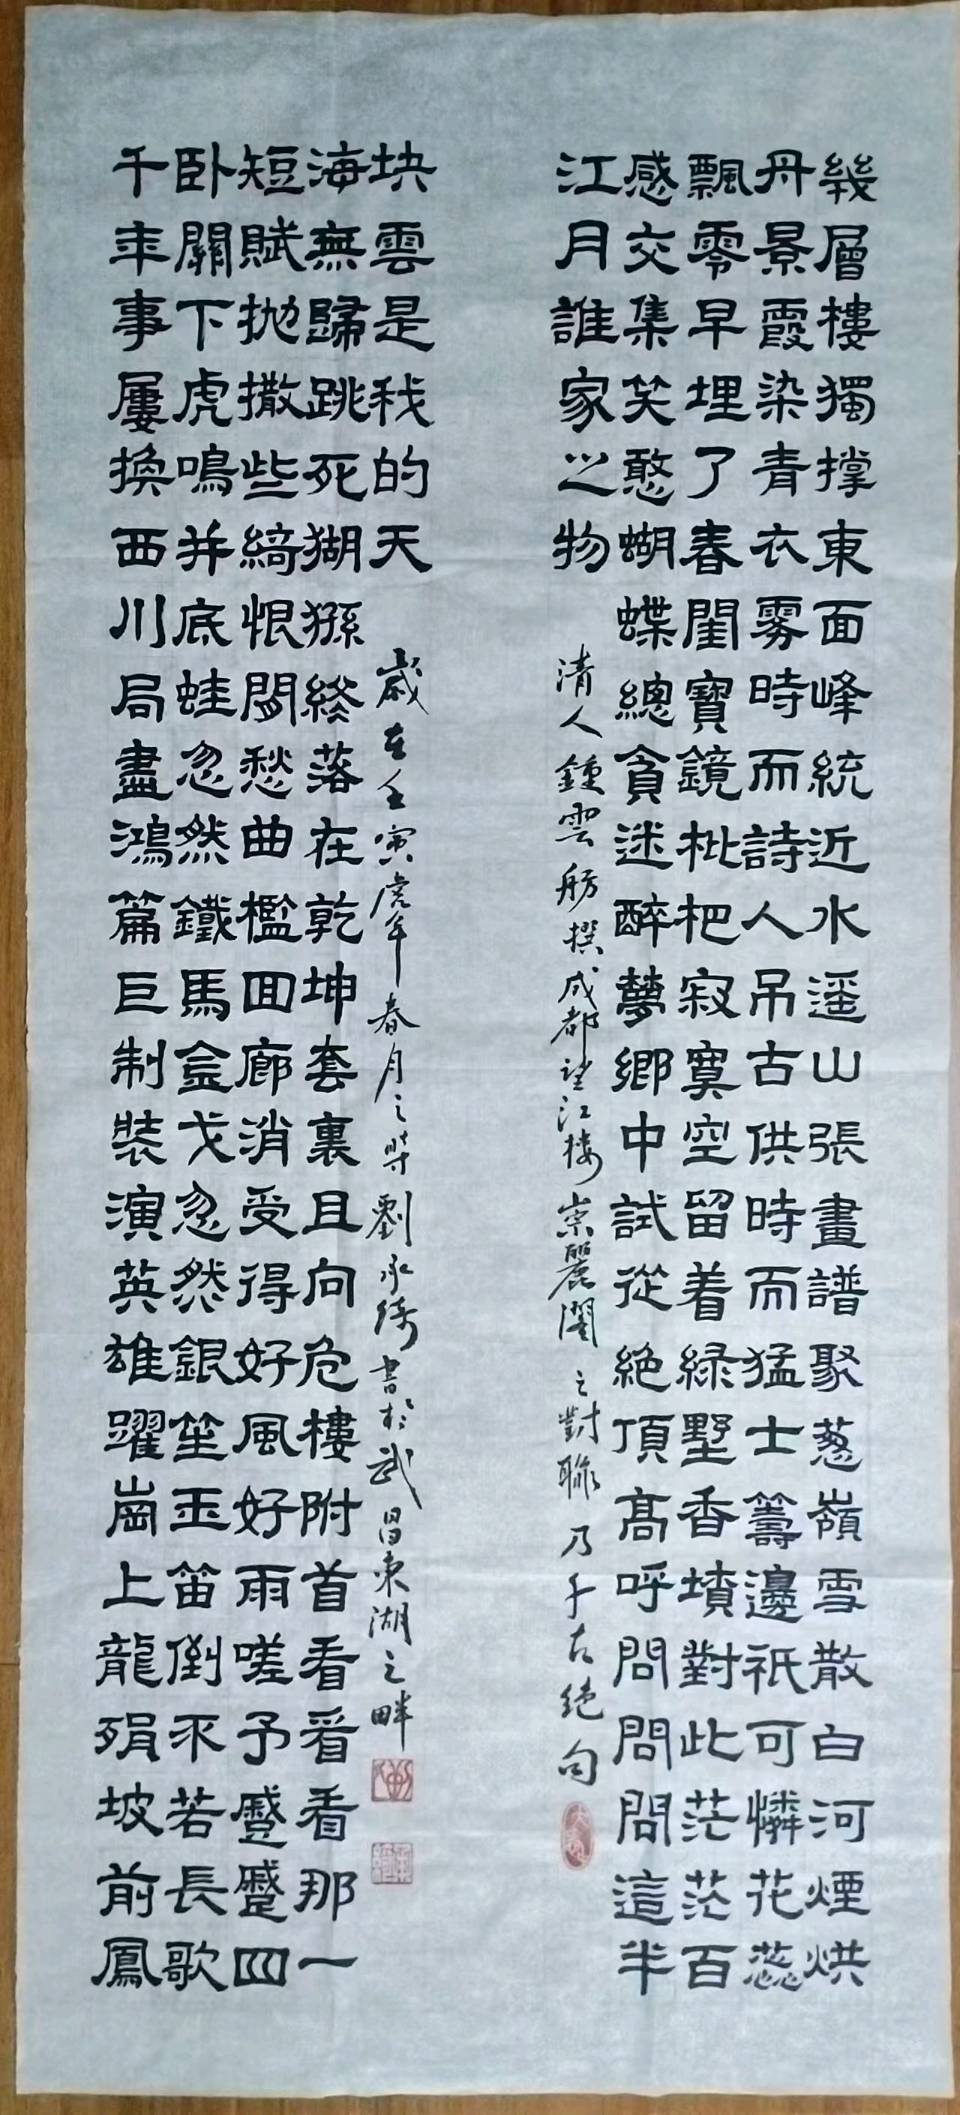 幾層樓獨撐東面峰統近水遥山張畫譜聚葱嶺雪散白河煙烘
丹景霞染青衣霧時而詩人吊古供時而猛士籌邊祇可憐花蕊
飄零早埋了春閨寶鏡枇杷寂寞空留着緑墅香墳對此茫茫百
感交集笑憨蝴蝶總貪迷醉夢鄉中試從絶頂高呼問問問這半
江月誰家之物
清人鍾雲舫撰成都望江樓崇麗閣之對聯乃千古絶句
千年事屢換西川局盡鴻篇巨制裝演英雄躍崗上龍殞坡前鳳
卧關下虎鳴井底蛙忽然鐵馬金戈忽然銀笙玉笛倒不若長歌
短賦抛撒些綺恨閑愁曲檻囬廊消受得好風好雨嗟予蹙蹙四
海無歸跳死猢猻終落在乾坤套裏且向危樓附首看看看那一
块雲是我的天
歲在壬寅虎年春月之時劉永綺書於武昌東湖之畔